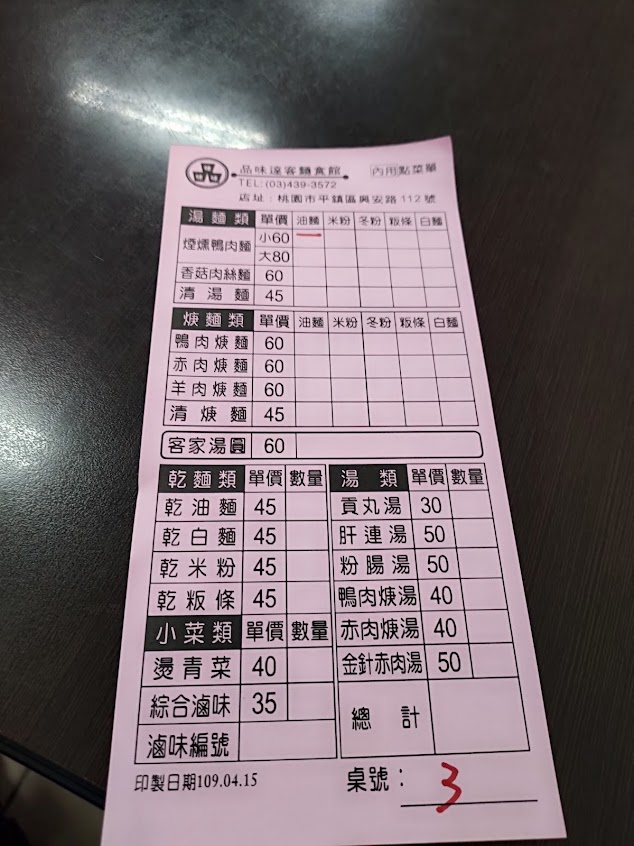 品味達客麵食館 內用點菜單
TEL: (03)439-3572
店址：桃園市平鎮區興安路 112 號
湯麵類 單價 油麵 米粉 冬粉 粄條 白麵
煙燻鴨肉麵 小60 一
大80
香菇肉絲麵 60
清湯麵 45
焿麵類 單價 油麵 米粉 冬粉 粄條 白麵
鴨肉焿麵 60
赤肉焿麵 60
羊肉焿麵 60
清焿麵 45
客家湯圓 60
乾麵類 單價 數量
乾油麵 45
乾白麵 45
乾米粉 45
乾粄條 45
小菜類 單價 數量
燙青菜 40
綜合滷味 35
滷味編號
湯類 單價 數量
貢丸湯 30
肝連湯 50
粉腸湯 50
鴨肉焿湯 40
赤肉焿湯 40
金針赤肉湯 50
總計
印製日期109.04.15
桌號： 3